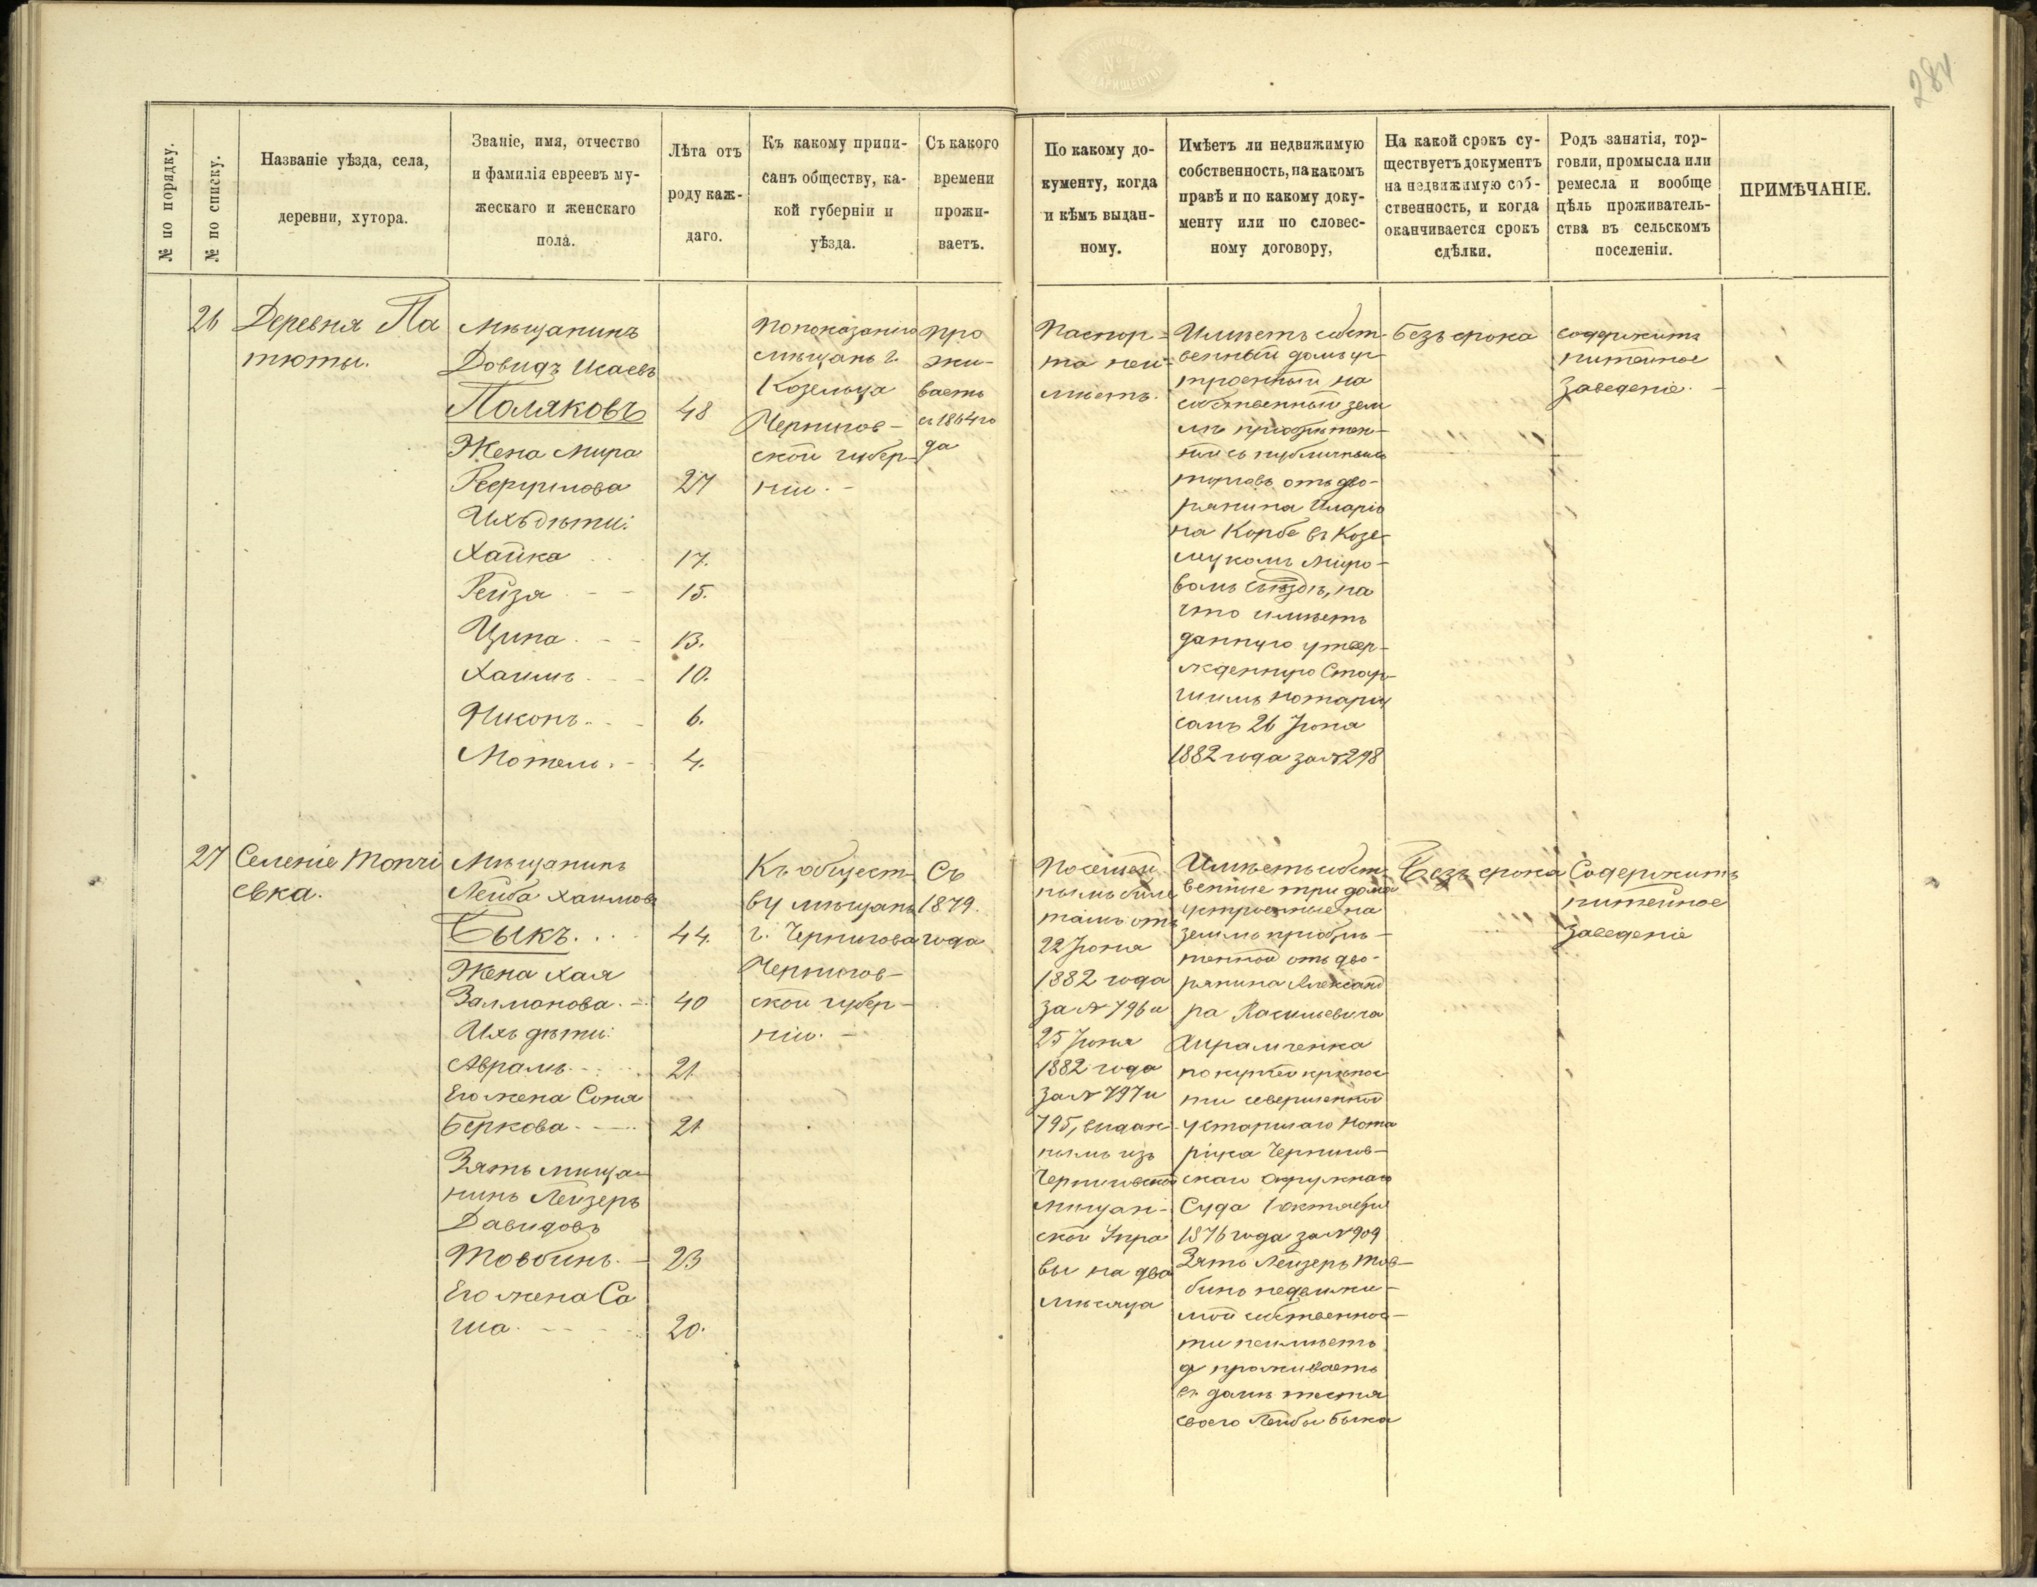 284
№ по порядку.
№ по списку.
Названіе уѣзда, села,
деревни, хутора.
Званіе, имя, отчество
и фамилія евреевъ му-
жескаго и женскаго
пола.
Лѣта отъ
роду каж-
даго.
Къ какому припи-
санъ обществу, ка-
кой губерніи и
уѣзда.
Съ какого
времени
прожи-
ваетъ.
По какому до-
кументу, когда
и кѣмъ выдан-
ному.
Имѣетъ ли недвижимую
собственность, на какомъ
правѣ и по какому доку-
менту или по словес-
ному договору,
На какой срокъ су-
ществуетъ документъ
на недвижимую соб-
ственность, и когда
оканчивается срокъ
сдѣлки.
Родъ занятія, тор-
говли, промысла или
ремесла и вообще
цѣль проживатель-
ства въ сельскомъ
поселеніи.
ПРИМѢЧАНІЕ.
26
Деревня Па
тюты.
Мѣщанинъ
Довидъ Исаевъ
Поляковъ 48
Жена Мира
27
Ихъ дѣти:
Хайка 17.
Рейза 15.
Ципа 13.
Хаимъ 10.
6.
Мотель. 4.
По показанію
мѣщанъ г.
Козельца
Чернигов-
ской губер-
ніи.
про
жи-
ваетъ
съ 1864 го
да
Паспор-
та неи-
мѣетъ.
Имѣетъ собст-
венный домъ ус
троенный на
собственной зем
лѣ пріобрѣтен-
ной съ публичныхъ
торговъ отъ дво-
рянина Иларіо
на Корбе въ Козе-
лецкомъ Миро-
вомъ Съѣздѣ, на
что имѣетъ
данную утвер-
жденную Стар-
шимъ Нотаріу
сомъ 26 Іюня
1882 года за № 298
Безъ срока
содержитъ
питейное
заведеніе.
27
Селеніе Топчі
евка.
Мѣщанинъ
Лейба Хаимовъ
Быкъ. 44.
Жена Хая
Залманова. 40
Ихъ дѣти:
Авраамъ 21
Его жена Соня
Беркова 21
Зять мѣща-
нинъ Лейзеръ
Давидовъ
Товбинъ. 23
Его жена Са
ша. 20.
Къ общест-
ву мѣщанъ
г. Чернигова
Чернигов-
ской губер-
ніи.
Съ
1879.
года
По семей
нымъ биле
тамъ отъ
22 Іюня
1882 года
за № 796 и
25 Іюня
1882 года
за № 797 и
795, выдан-
нымъ изъ
Черниговской
Мѣщан-
ской Упра
вы на два
мѣсяца
Имѣетъ собст-
венные три дома
устроенные на
землѣ пріобрѣ-
тенной отъ дво-
рянина Александ
ра Васильевича
Храмченка
по купчей крѣпос
ти совершенной
у старшаго Нота
ріуса Чернигов-
скаго Окружнаго
Суда 1 октября
1876 года за № 909
Зять Лейзеръ Тов-
бинъ недвижи-
мой собственнос-
ти неимѣетъ
а проживаетъ
въ домѣ тестя
своего Лейбы Быка
Безъ срока
Содержитъ
питейное
заведеніе